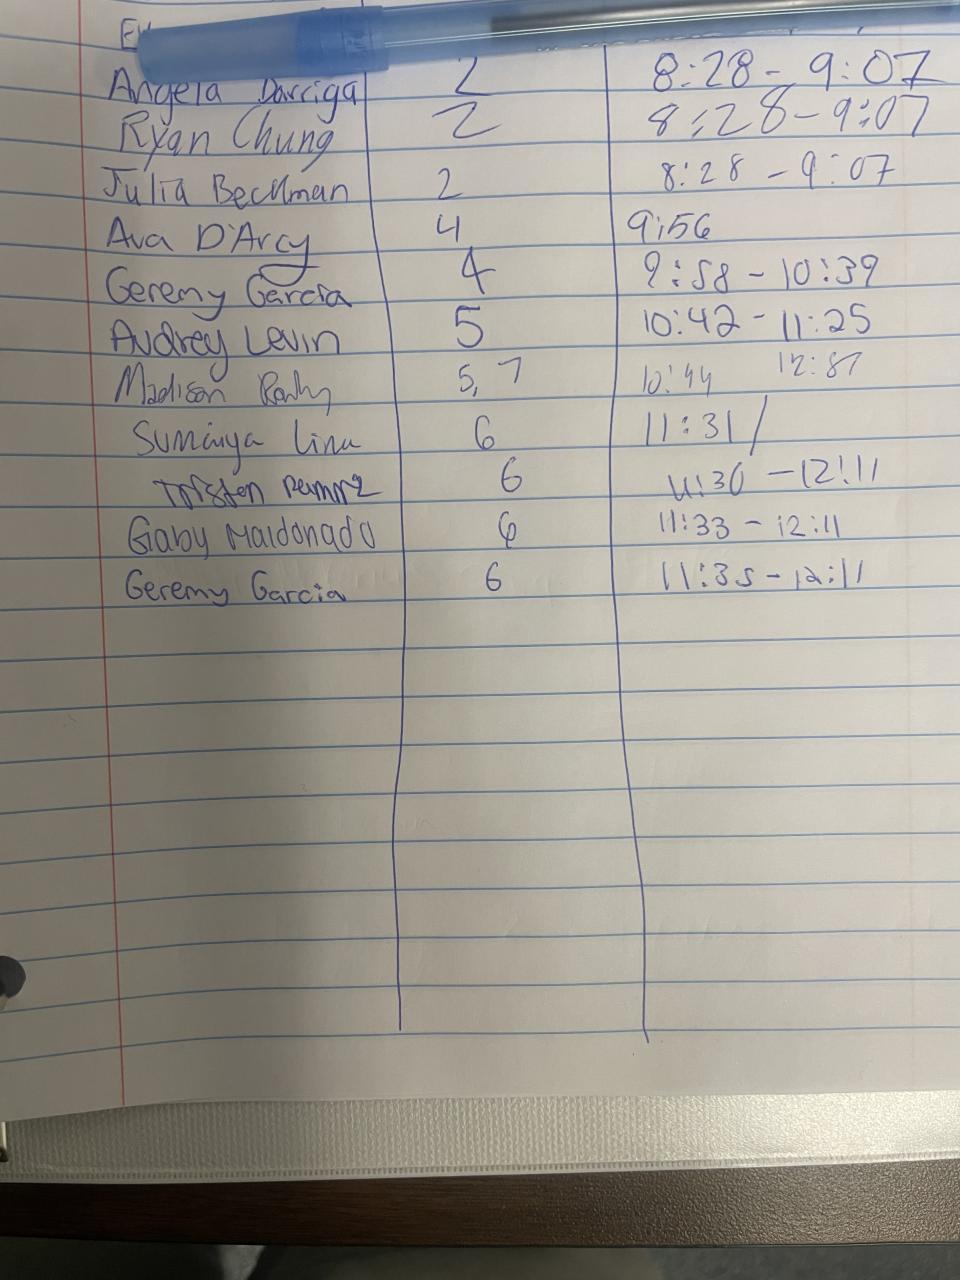 Angela Darriga 2 8:28 - 9:07
Ryan Chung 2 8:28 - 9:07
Julia Beckman 2 8:28 - 9:07
Ava D'Arcy 4 9:56
Geremy Garcia 4 9:58 - 10:39
Audrey Levin 5 10:42 - 11:25
Madison 5, 7 10:44
Sumaiya 6 11:31 /
6 11:30 - 12:11
Gaby Maldonado 6 11:33 - 12:11
Geremy Garcia 6 11:35 - 12:11